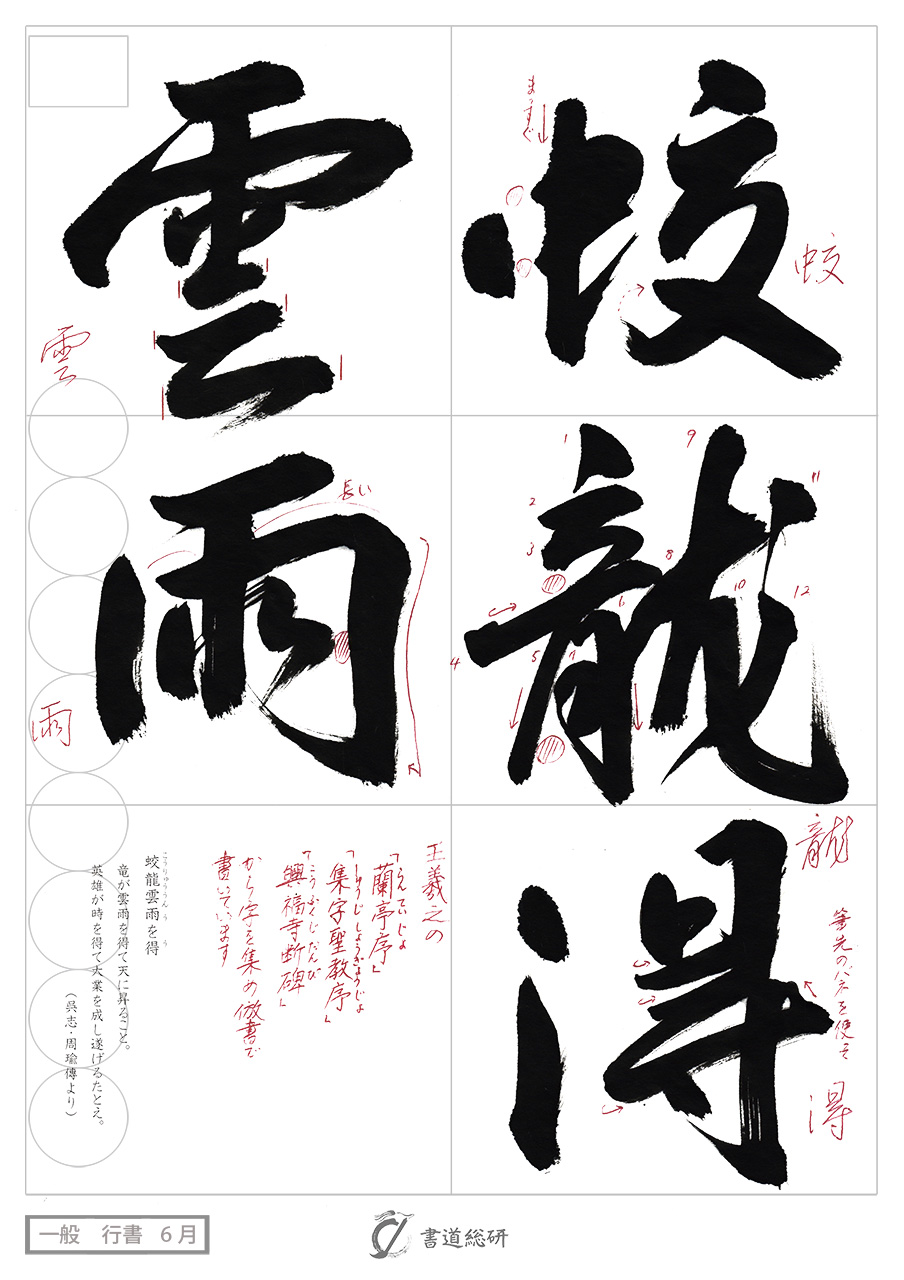 蛟
龍
得
雲
雨
まっすぐ
蛟
1
2
3
4
5
6
7
8
9
10
11
12
龍
筆先のバネを使って
得
雲
長い
雨
王羲之の
「蘭亭序」
らんていじょ
「集字聖教序」
しゅうじしょうぎょうじょ
「興福寺断碑」
こうふくじだんぴ
から字を集め倣書で
書いています
蛟龍雲雨を得
こうりゅううんう う
竜が雲雨を得て天に昇ること。
英雄が時を得て大業を成し遂げるたとえ。
（呉志・周瑜傳より）
一般 行書 6月
書道総研